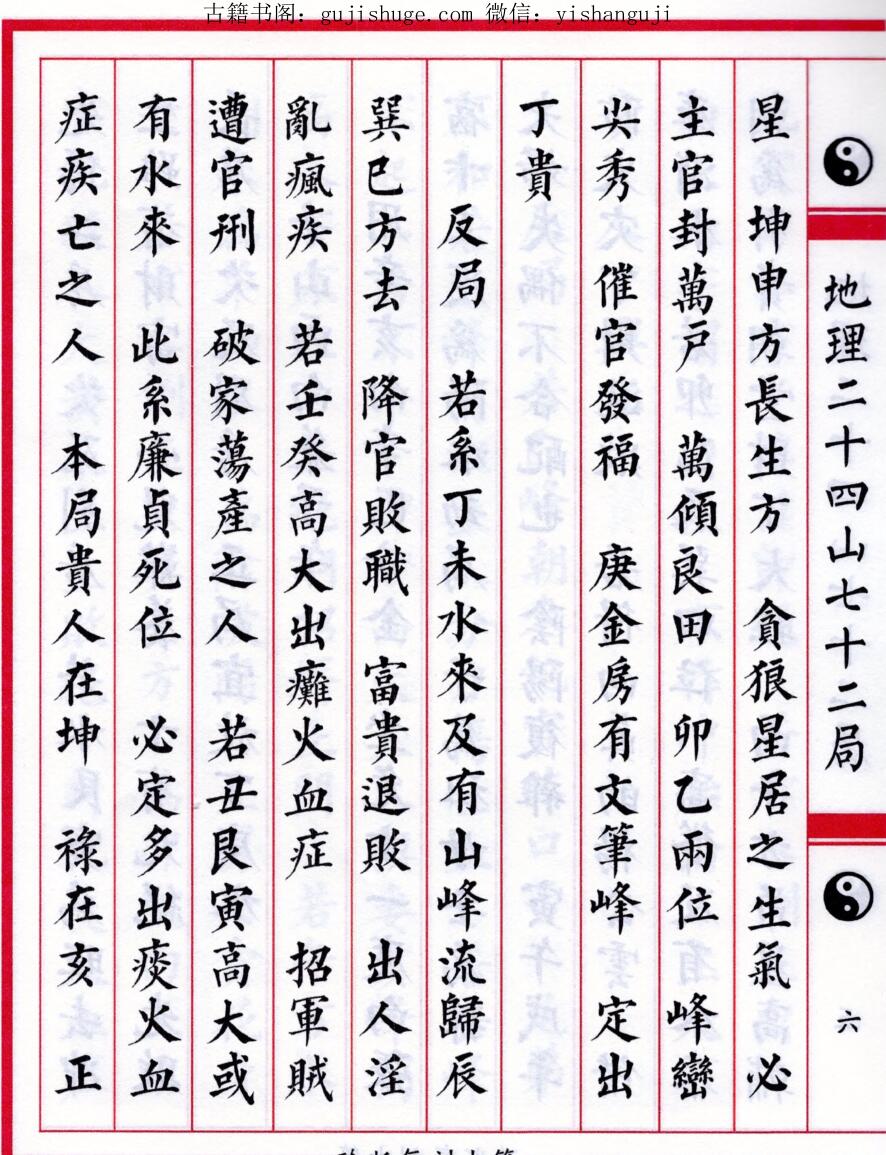 古籍书阁：gujishuge.com 微信：yishanguji
地理二十四山七十二局
六
星 坤申方長生方 貪狼星居之生氣 必
主官封萬戶 萬傾良田 卯乙兩位 峰巒
尖秀 催官發福 庚金房有文筆峰 定出
丁貴
反局 若系丁未水來及有山峰流歸辰
巽巳方去 降官敗職 富貴退敗 出人淫
亂瘋疾 若壬癸高大出癱火血症 招軍賊
遭官刑 破家蕩產之人 若丑艮寅高大或
有水來 此系廉貞死位 必定多出痰火血
症疾亡之人 本局貴人在坤 祿在亥 正